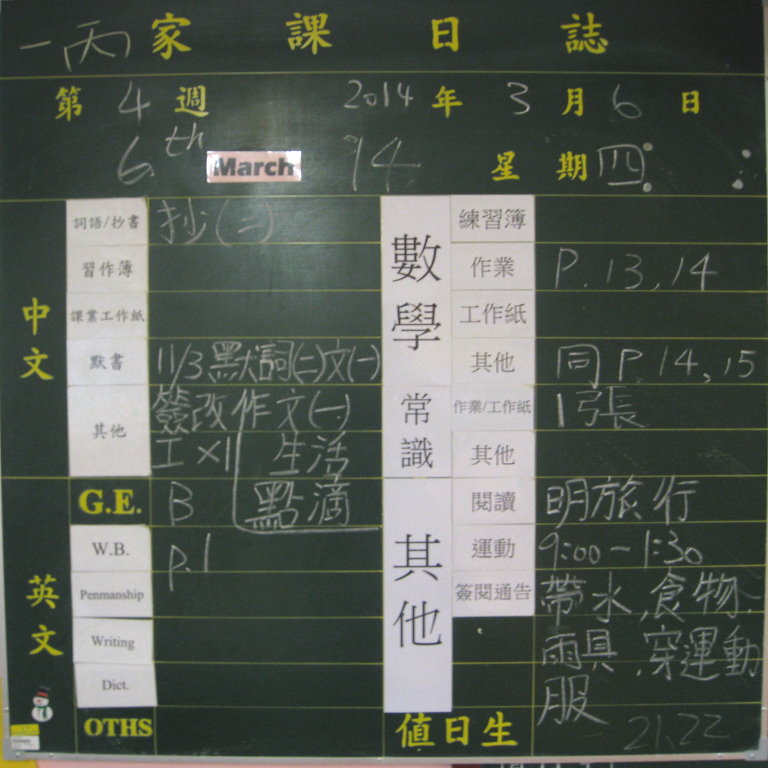 一丙 家課日誌
第 4 週 2014 年 3 月 6 日
6.th March 14 星期四
中文
詞語/抄書 抄(二)
習作簿
課業工作紙
默書 11/3默詞(二)文(一)
其他 簽改作文(一)
工×1 生活
點滴
英文
G.E. B
W.B. P.1
Penmanship
Writing
Dict.
OTHS
數學
練習簿
作業 P.13,14
工作紙
其他 同P.14,15
常識
作業/工作紙 1張
其他
其他
閱讀 明旅行
運動 9:00-1:30
簽閱通告 帶水,食物,
雨具,穿運動
服
值日生 21,22